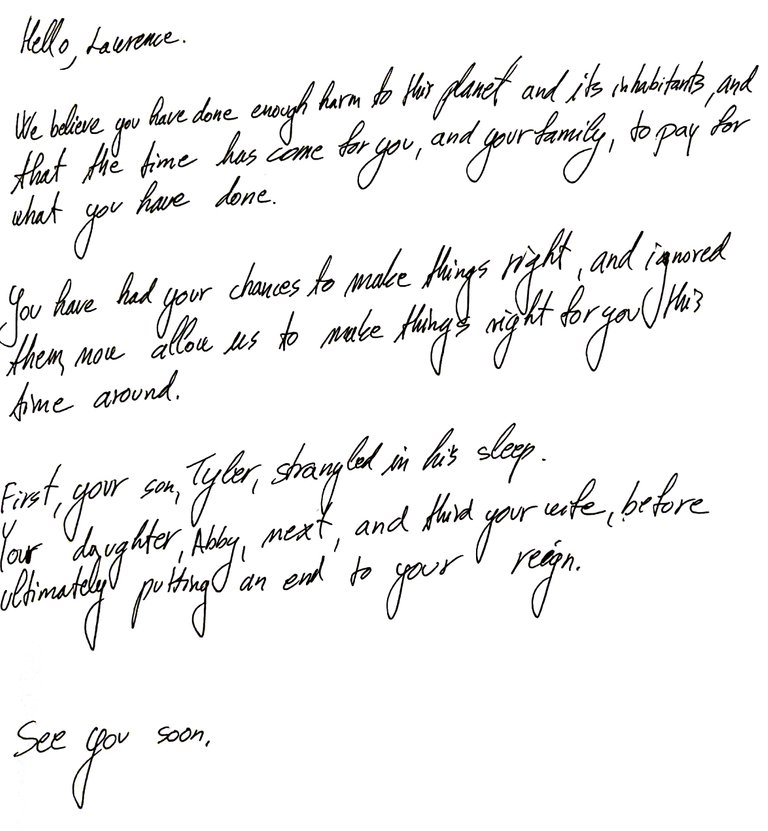 Hello, Lawrence.
We believe you have done enough harm to this planet and its inhabitants, and
that the time has come for you, and your family, to pay for
what you have done.
You have had your chances to make things right, and ignored
them, now allow us to make things right for you this
time around.
First, your son, Tyler, strangled in his sleep.
Your daughter, Abby, next, and third your wife, before
ultimately putting an end to your reign.
See you soon.